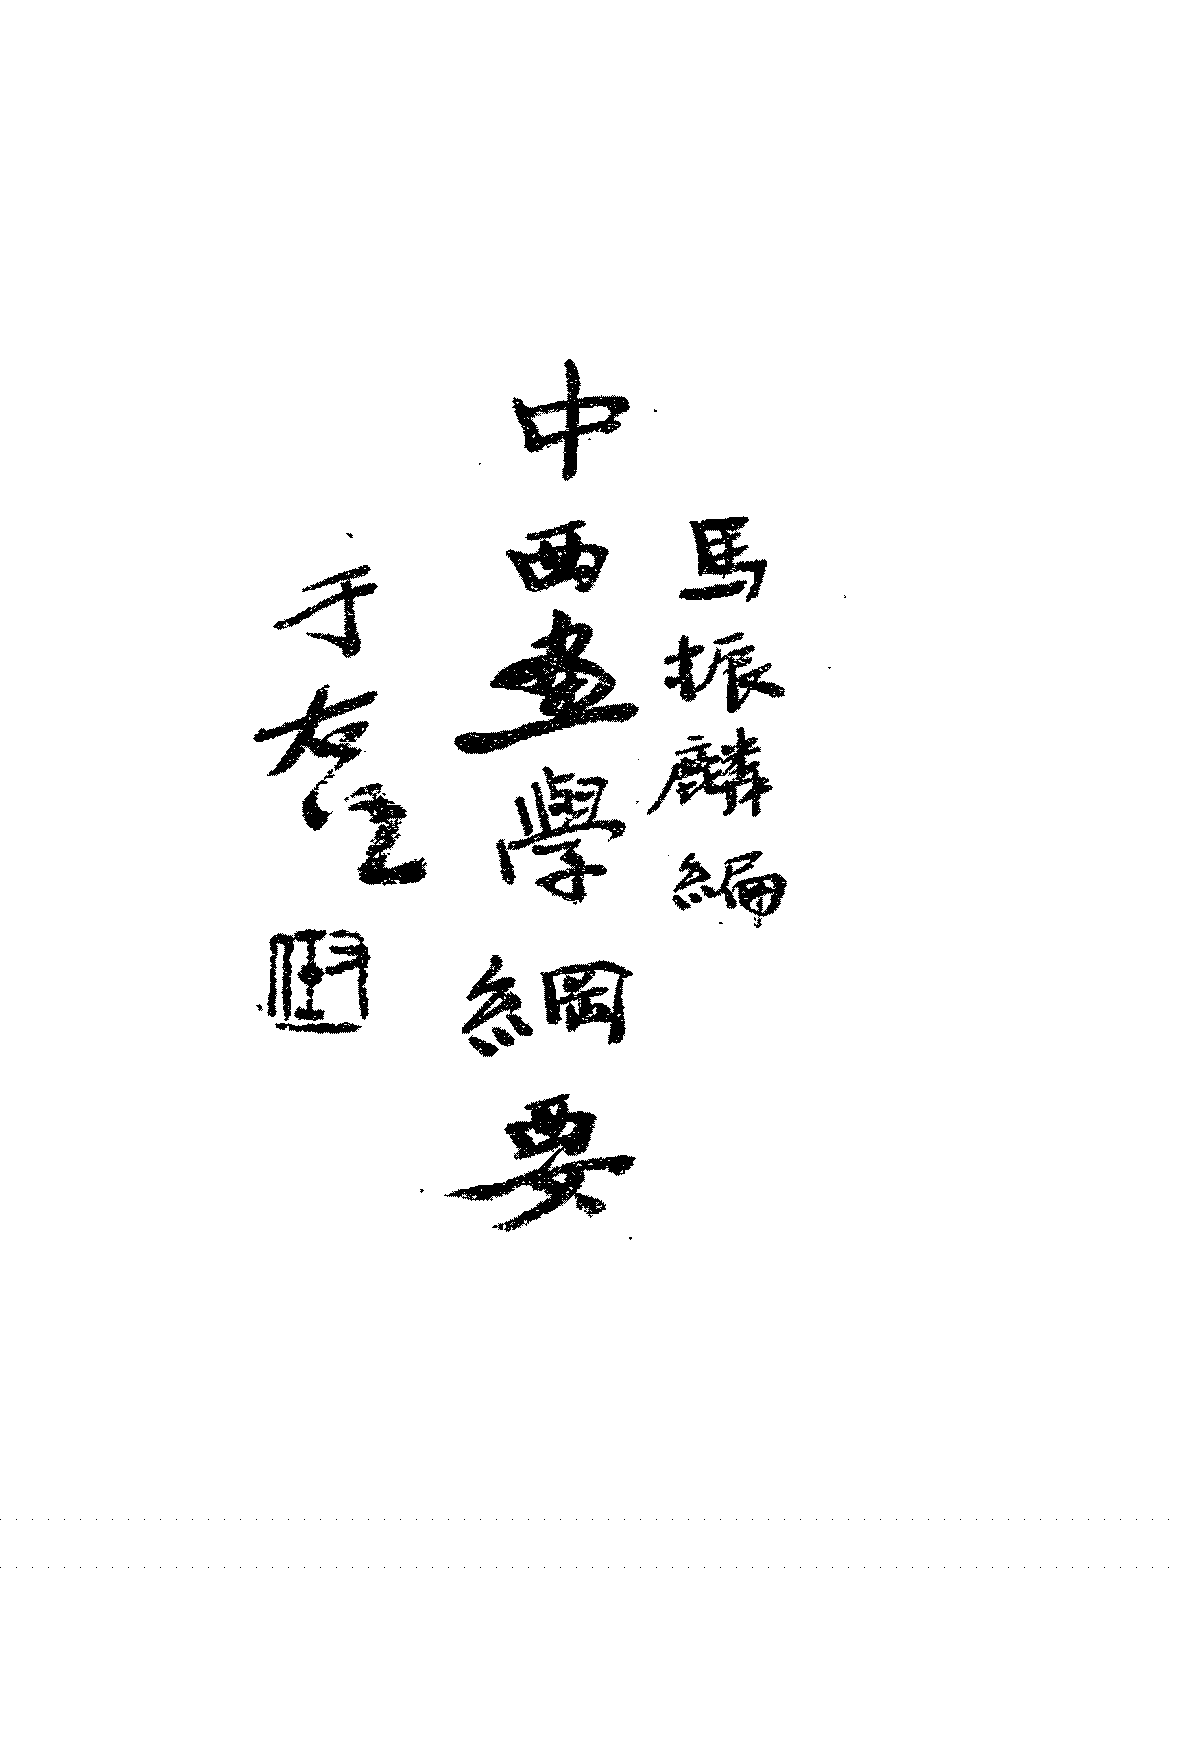 馬振麟編
中西畫學綱要
于右任